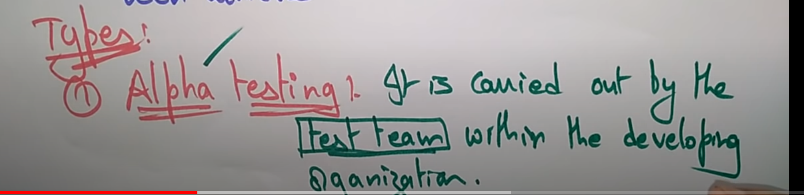 Types:
① Alpha testing: It is carried out by the
test team within the developing
organization.